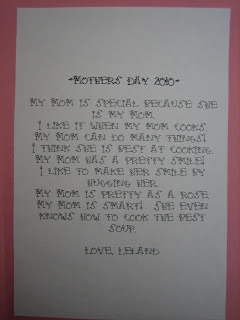 *MOTHERS DAY 2010*
MY MOM IS SPECIAL BECAUSE SHE
IS MY MOM.
I LIKE IT WHEN MY MOM COOKS.
MY MOM CAN DO MANY THINGS!
I THINK SHE IS BEST AT COOKING.
MY MOM HAS A PRETTY SMILE!
I LIKE TO MAKE HER SMILE BY
HUGGING HER.
MY MOM IS PRETTY AS A ROSE.
MY MOM IS SMART! SHE EVEN
KNOWS HOW TO COOK THE BEST
SOUP.
LOVE, LELAND